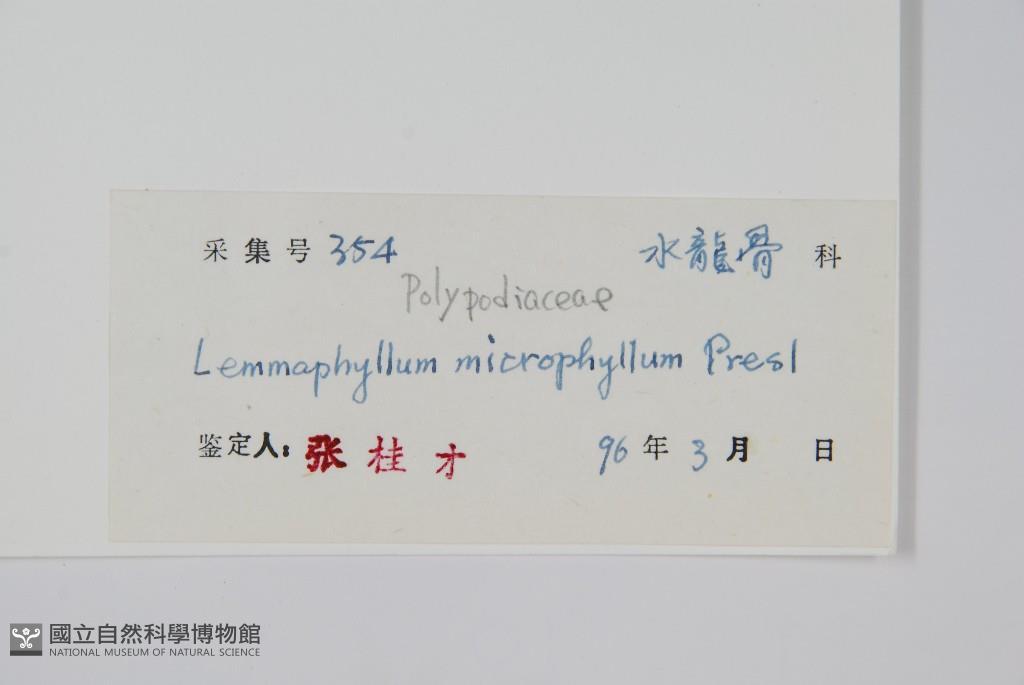 采集号 354 水龍骨 科
Polypodiaceae
Lemmaphyllum microphyllum Presl
鉴定人: 张桂才 96 年 3 月 日
國立自然科學博物館
NATIONAL MUSEUM OF NATURAL SCIENCE